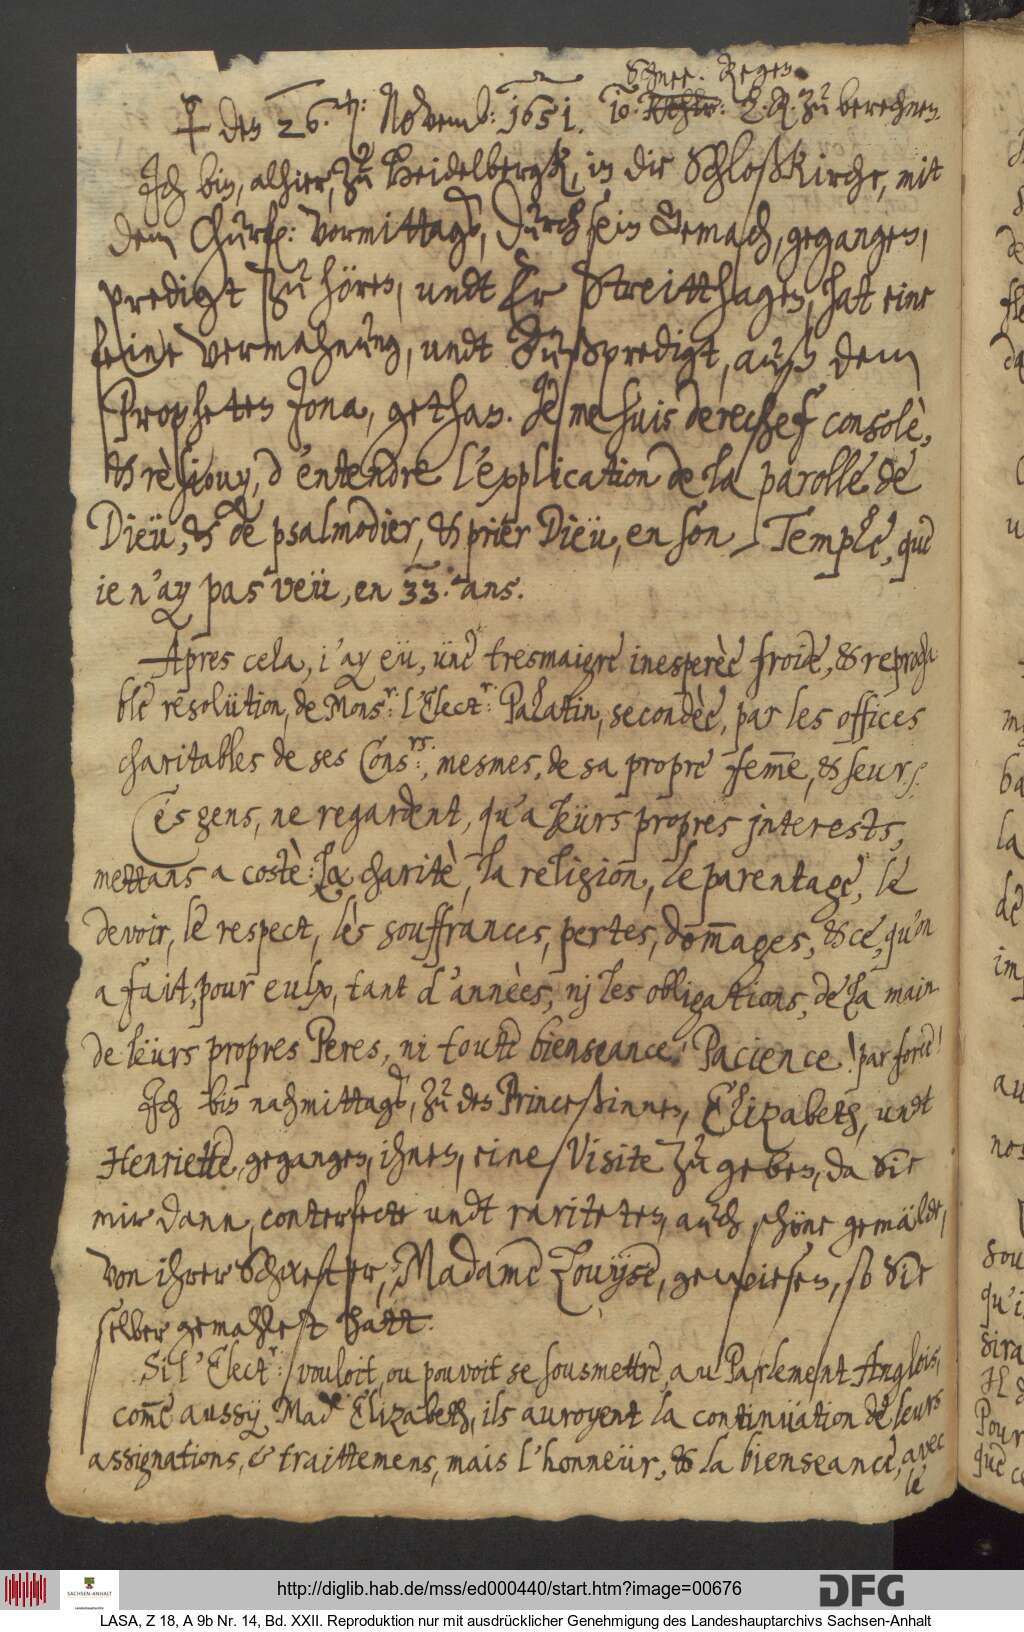 Schnee. Regen.
♀ den 26. ten: Novemb: 1651. zu berechnen.
Jch bin, alhier, zu Heidelbergk, in die Schloßkirche, mit
dem Churf: vormittags, durch sein Gemach, gegangen,
predigt zu hören, undt Er Streitthagen, hat eine
feine vermahnung, undt Bußpredigt, auß dem
Propheten Jona, gethan. Je me suis derechef consolè,
& rèsjouy, d'entendre l'explication de la parolle de
Dieü, & de psalmodier, & prier Dieü, en son Temple, que
ie n'ay pas veü, en 33. ans.
Apres cela, i'ay eü, üne tresmaigre inesperèe froide, & reprocha
ble resolütion, de Monsr: l'Electr: Palatin, secondèe, par les offices
charitables de ses Consrs:, mesmes, de sa propre fem̄e, & seur.
Ces gens, ne regardent, qu'a leürs propres jnterests,
mettans a costè: la charitè, la religion, le parentage, le
devoir, le respect, les souffrances, pertes, dom̄ages, & ce, qu'on
a fait, pour eulx, tant d'annèes, nj les obligations, de la main
de leürs propres Peres, ni toute bienseance! Pacience! par force!
Jch bin nachmittags, zu den Princeßinnen, Elizabeth, undt
Henriette, gegangen, ihnen, eine Visite zu geben, da Sie
mir dann, conterfecte undt rariteten, auch schöne gemälde,
von ihrer Schwester, Madame Louyse, gewiesen, so Sie
selber gemahlet hatt.
Si l'Electr: vouloit, ou pouvoit se sousmettre, au Parlement Anglois,
com̄e aussy Made Elizabeth, ils auroyent la continüation de leurs
assignations, & traittemens, mais l'honneür, & la bienseance, avec
le
http://diglib.hab.de/mss/ed000440/start.htm?image=00676
SACHSEN-ANHALT
DFG
LASA, Z 18, A 9b Nr. 14, Bd. XXII. Reproduktion nur mit ausdrücklicher Genehmigung des Landeshauptarchivs Sachsen-Anhalt